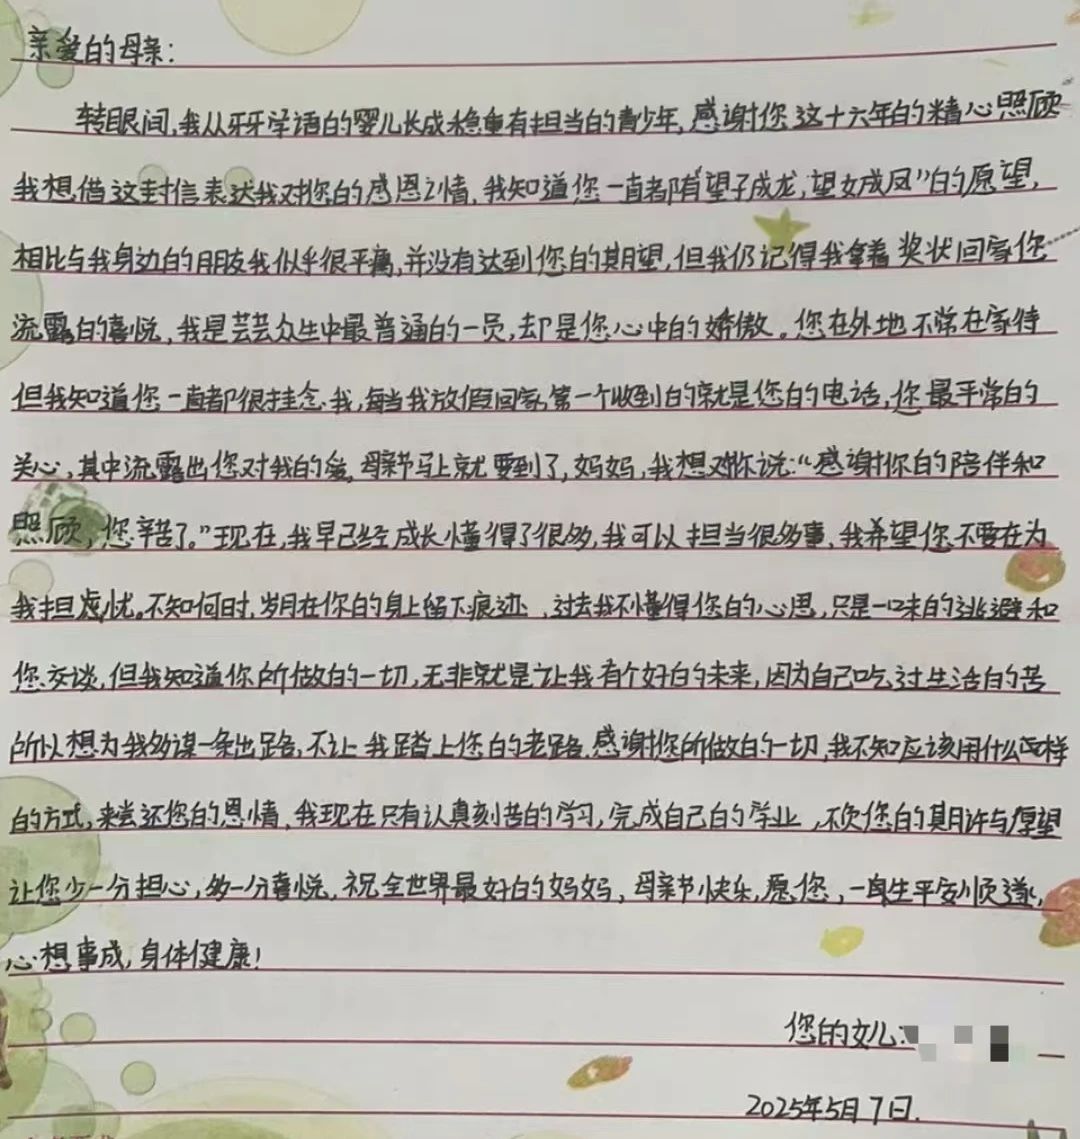 亲爱的母亲：
转眼间，我从牙牙学语的婴儿长成稳重有担当的青少年，感谢您这十六年的精心照顾
我想借这封信表达我对您的感恩之情，我知道您一直都有“望子成龙，望女成凤”的愿望，
相比与我身边的朋友我似乎很平庸，并没有达到您的期望，但我仍记得我拿着奖状回家您
流露的喜悦，我是芸芸众生中最普通的一员，却是您心中的娇傲。您在外地不常在家待
但我知道您一直都很挂念我，每当我放假回家，第一个收到的就是您的电话，您最平常的
关心，其中流露出您对我的爱，母亲节马上就要到了，妈妈，我想对你说：“感谢你的陪伴和
照顾，您辛苦了。”现在，我早已经成长懂得了很多，我可以担当很多事，我希望您不要在为
我担忧。不知何时，岁月在你的身上留下痕迹，过去我不懂得您的心思，只是一味的逃避和
您交谈，但我知道你所做的一切，无非就是让我有个好的未来，因为自己吃过生活的苦
所以想为我多谋一条出路，不让我踏上您的老路。感谢您所做的一切，我不知应该用什么怎样
的方式，来尝还您的恩情，我现在只有认真刻苦的学习，完成自己的学业，不负您的期许与厚望
让您少一分担心，多一分喜悦，祝全世界最好的妈妈，母亲节快乐，愿您，一生平安顺遂，
心想事成，身体健康！
您的女儿：
2025年5月7日.